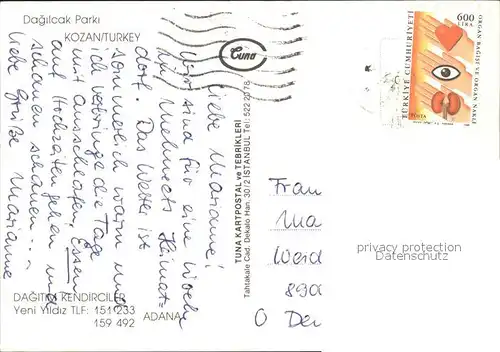 Dağılcak Parkı
KOZAN/TURKEY
Liebe Marianne!
Wir sind für eine Woche
in Mehmets Heimat-
dorf. Das Wetter ist
sommerlich warm und
ich verbringe die Tage
mit Ausschlafen, Essen,
auf Hochzeiten gehen und
schauen, schauen...
liebe Grüße Marianne
DAĞITIM KENDİRCİLER
Yeni Yıldız TLF: 151 233
159 492 ADANA
Tuna
TUNA KARTPOSTAL ve TEBRİKLERİ
Tahtakale Cad. Dekalo Han. 30/2 İSTANBUL Tel: 522 02 78
600
LİRA
TÜRKİYE CUMHURİYETİ
ORGAN BAĞIŞI VE ORGAN NAKLİ
POSTA
Frau
Ma
Weid
890
privacy protection
Datenschutz